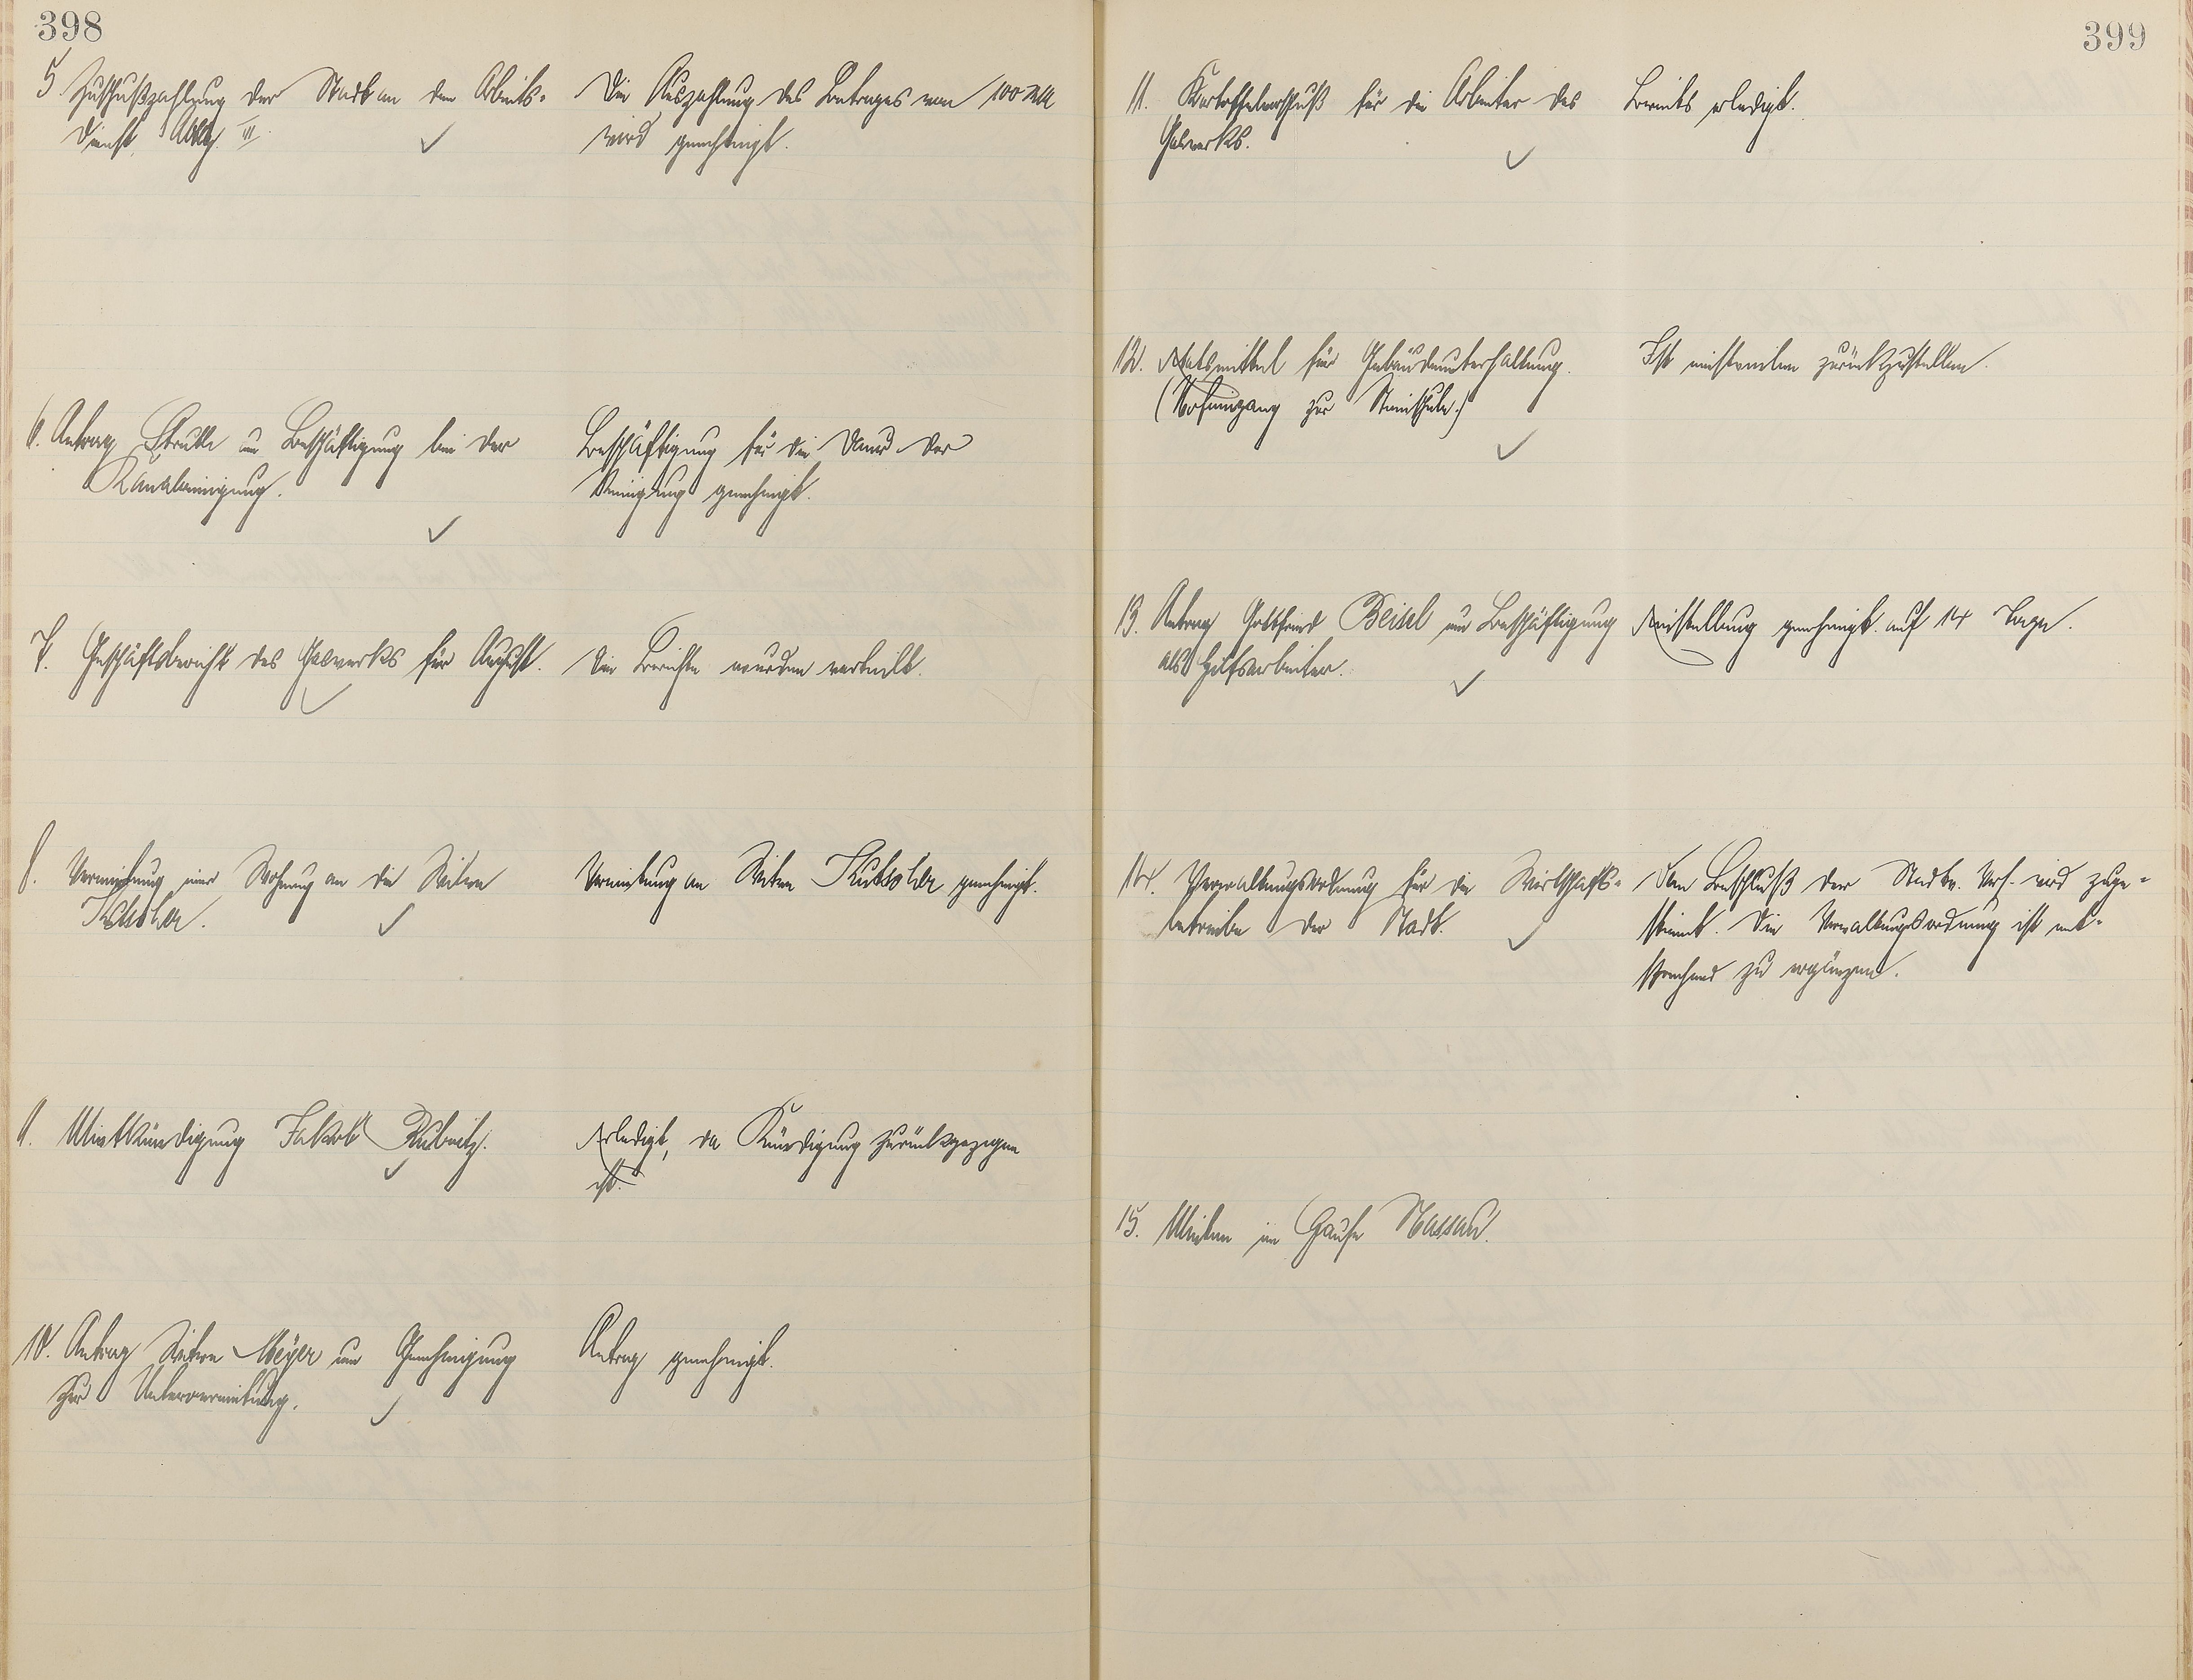 398
5. Zuschußzahlung der Stadt an den Arbeits-
dienst, Abtlg. III.
Die Auszahlung des Betrages von 100 RM
wird genehmigt.
6. Antrag Strutte um Beschäftigung bei der
Kanalreinigung.
Beschäftigung für die Dauer der
Reinigung genehmigt.
7. Geschäftsbericht des Gaswerks für August.
Die Berichte wurden verteilt.
8. Vermietung einer Wohnung an die Witwe
Kutscher.
Vermietung an Witwe Kutscher genehmigt.
9. Mietkündigung Jakob Rubnitz.
Erledigt, da Kündigung zurückgezogen
ist.
10. Antrag Witwe Meyer um Genehmigung
zur Untervermietung.
Antrag genehmigt.
399
11. Kartoffelvorschuß für die Arbeiter des
Gaswerks.
Bereits erledigt.
12. Etatsmittel für Gebäudeunterhaltung.
(Hofeingang zur Steinschule.)
Ist einstweilen zurückzustellen.
13. Antrag Gottfried Beisel um Beschäftigung
als Hilfsarbeiter.
Einstellung genehmigt auf 14 Tage.
14. Verwaltungsordnung für die Wirtschafts-
betriebe der Stadt.
Dem Beschluß der Stadtv. Vers. wird zuge-
stimmt. Die Verwaltungsordnung ist ent-
sprechend zu ergänzen.
15. Mieten im Hause Nassau.